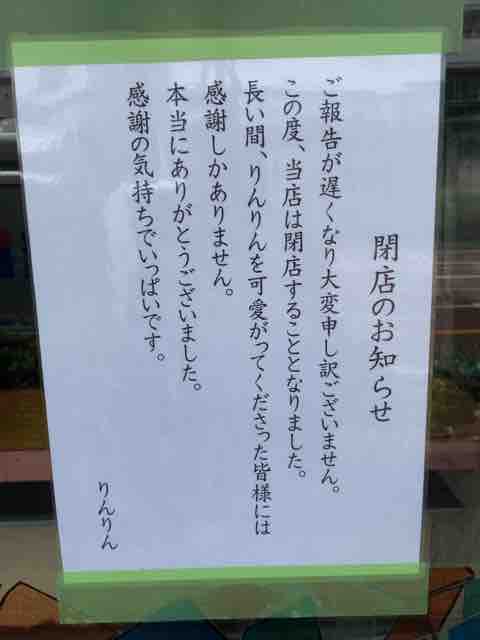 閉店のお知らせ
ご報告が遅くなり大変申し訳ございません。
この度、当店は閉店することとなりました。
長い間、りんりんを可愛がってくださった皆様には
感謝しかありません。
本当にありがとうございました。
感謝の気持ちでいっぱいです。
りんりん